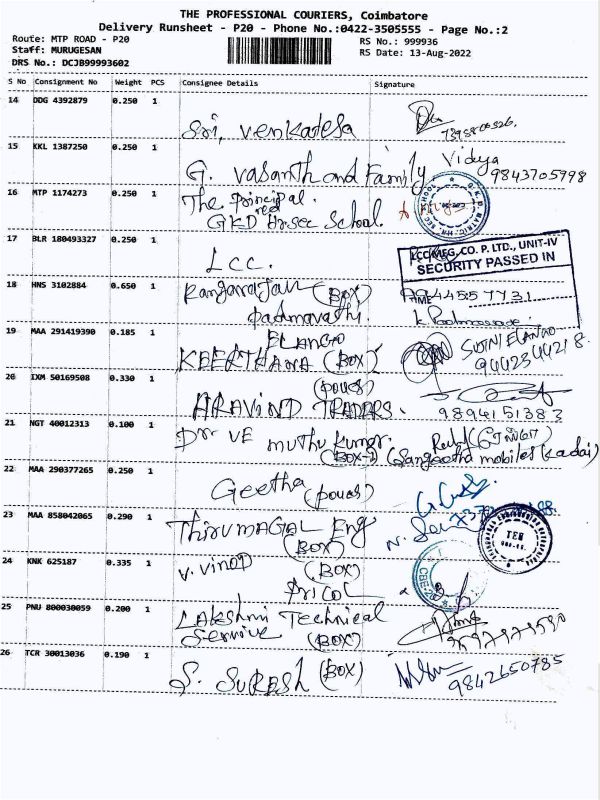 THE PROFESSIONAL COURIERS, Coimbatore
Delivery Runsheet - P20 - Phone No.:0422-3505555 - Page No.:2
Route: MTP ROAD - P20
RS No.: 999936
Staff: MURUGESAN
RS Date: 13-Aug-2022
DRS No.: DCJB99993602
S No Consignment No Weight PCS Consignee Details Signature
14 DDG 4392879 0.250 1
Sri, venkadesa
15 KKL 1387250 0.250 1
G. vasanth and Family
Vidya
9843705998
16 MTP 1174273 0.250 1
The principal.
GKD Hr.sec School.
17 BLR 180493327 0.250 1
LCC.
CO. P. LTD., UNIT-IV
SECURITY PASSED IN
TIME
18 HNS 3102884 0.650 1
Rangarajan (BOX)
padmavathi
9944557731
19 MAA 291419390 0.185 1
ELANGO
KEERTHANA (BOX)
20 IXM 50169508 0.330 1
(poues)
ARAVIND TRADERS.
9894151383
21 NGT 40012313 0.100 1
Dr VE muthu kumar.
(BOX-1)
(Sangeetha mobiles (kadai)
22 MAA 290377265 0.250 1
Geetha (poues)
23 MAA 858042065 0.290 1
ThirumAGAL Eng
(BOX)
24 KNK 625187 0.335 1
V. Vinod (BOX)
pricol
25 PNU 800030059 0.200 1
LAKshmi Technical
Service (BOX)
26 TCR 30013036 0.190 1
S. SURESH (BOX)
9842650785